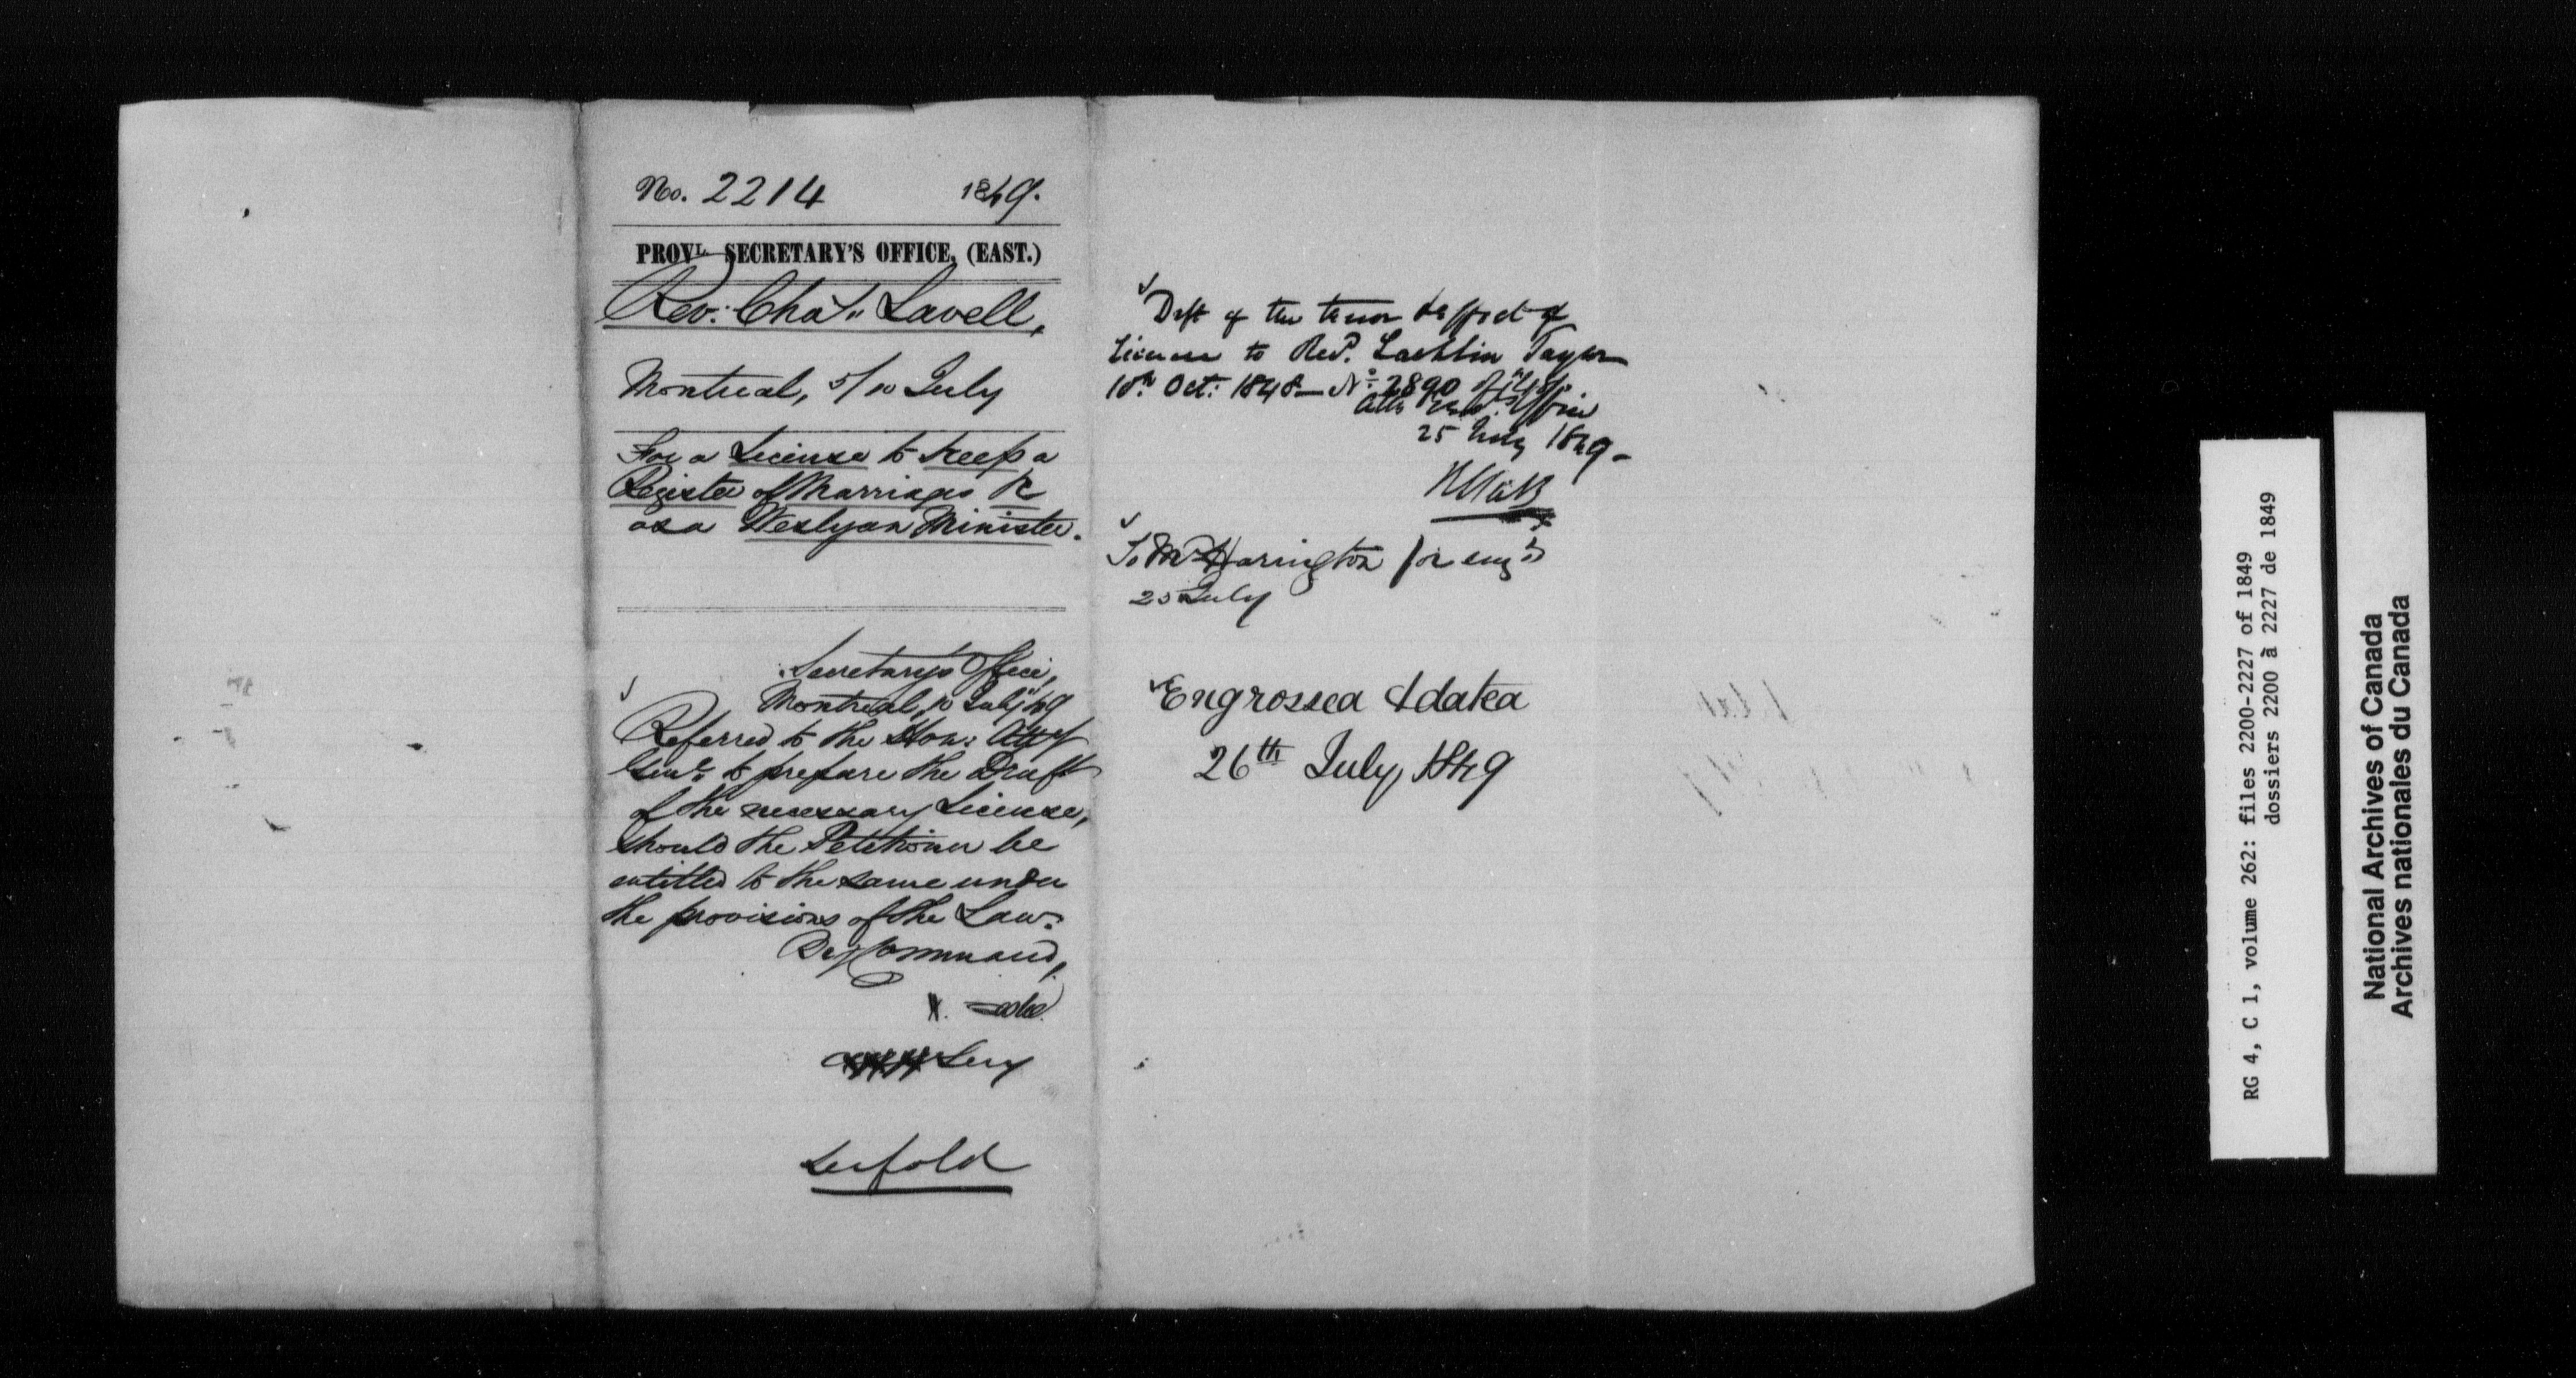 No. 2214 1849.
PROVL. SECRETARY'S OFFICE, (EAST.)
Rev: Chas. Lavell,
Montreal, 5/10 July
For a License to keep a
Register of Marriages &c
as a Weslyan Minister.
Secretary's Office,
Montreal, 10 July 49
Referred to the Hon: Atty
Genl. to prepare the Draft
of the necessary License,
should the Petitioner be
entitled to the same under
the provisions of the Law.
By Command,
Secy
See fold
Dft of the tenor & effect of
License to Revd. Lachlin Taylor
10th Oct: 1848 - No. 2890 of
Atty Genl. Office
25 July 1849 -
To Mr Harington for eng
25 July
Engrossed & dated
26th July, 1849
RG 4, C 1, volume 262: files 2200-2227 of 1849
dossiers 2200 à 2227 de 1849
National Archives of Canada
Archives nationales du Canada